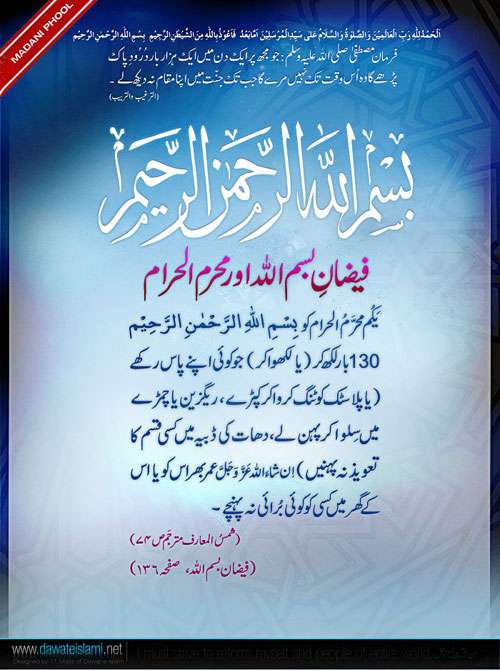 MADANI PHOOL
اَلْحَمْدُ لِلّٰہِ رَبِّ الْعٰلَمِیْنَ وَالصَّلٰوۃُ وَالسَّلَامُ عَلٰی سَیِّدِ الْمُرْسَلِیْنَ اَمَّا بَعْدُ فَاَعُوْذُ بِاللّٰہِ مِنَ الشَّیْطٰنِ الرَّجِیْمِ بِسْمِ اللّٰہِ الرَّحْمٰنِ الرَّحِیْمِ
فرمان مصطفٰی صلی اللہ علیہ وسلم : جو مجھ پر ایک دن میں ایک ہزار بار دُرُود پاک
پڑھے گا وہ اُس وقت تک نہیں مرے گا جب تک جنّت میں اپنا مقام نہ دیکھ لے ۔
(الترغیب والترہیب)
بِسْمِ اللّٰہِ الرَّحْمٰنِ الرَّحِیْمِ
فیضانِ بسم اللہ اور محرم الحرام
یَکُم مُحَرَّمُ الحرام کو بِسْمِ اللّٰہِ الرَّحْمٰنِ الرَّحِیْم
130 بار لکھ کر (یا لکھوا کر) جو کوئی اپنے پاس رکھے
(یا پلاسٹک کوٹنگ کروا کر کپڑے، ریگزین یا چمڑے
میں سِلوا کر پہن لے، دھات کی ڈبیہ میں کسی قسم کا
تعویذ نہ پہنیں) اِن شاءَ اللہ عَزَّوَجَلَّ عمر بھر اس کو یا اس
کے گھر میں کسی کو کوئی بُرائی نہ پہنچے ۔
(شمسُ المعارف مترجَم ص ۷۴)
(فیضان بسم اللہ، صفحہ ۱۳۶)
www.dawateislami.net
Designed by I.T Majlis of Dawat-e-Islami
I must strive to reform myself and people of entire world